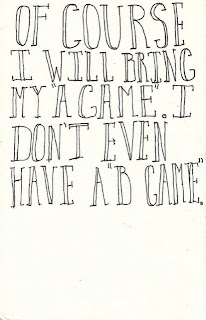 OF COURSE
I WILL BRING
MY "A GAME". I
DON'T EVEN
HAVE A "B GAME".